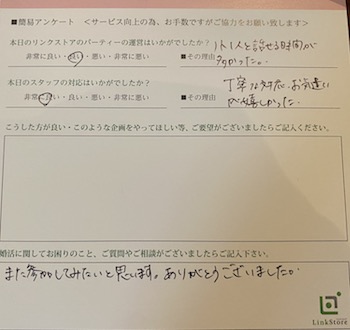 ■簡易アンケート <サービス向上の為、お手数ですがご協力をお願い致します>
本日のリンクストアのパーティーの運営はいかがでしたか?
非常に良い・良い・悪い・非常に悪い
■その理由
1人1人と話せる時間が
多かった。
本日のスタッフの対応はいかがでしたか?
非常に良い・良い・悪い・非常に悪い
■その理由
丁寧な対応、お気遣い
が嬉しかった
こうした方が良い・このような企画をやってほしい等、ご要望がございましたらご記入ください。
婚活に関してお困りのこと、ご質問やご相談がございましたらご記入下さい。
また参加してみたいと思います。ありがとうございました。
LinkStore